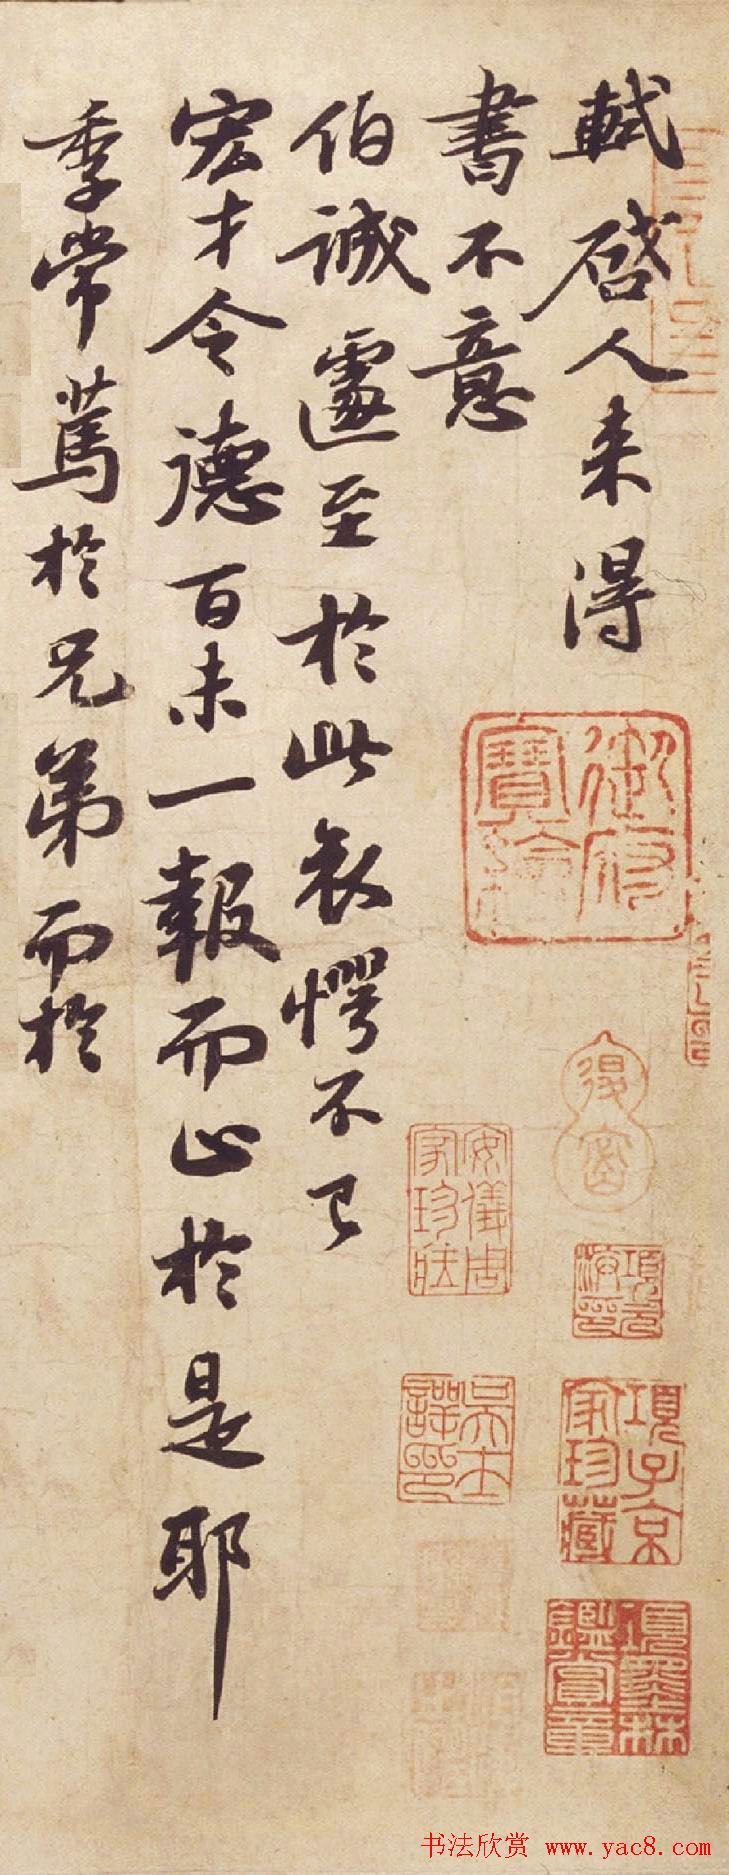 軾啓人来得
書不意
伯誠遽至於此哀愕不已
宏才令德百未一報而止於是耶
季常篤於兄弟而於
御府寶繪
安儀周家珍藏
項子京家珍藏
項墨林鑑賞章
书法欣赏 www.yac8.com